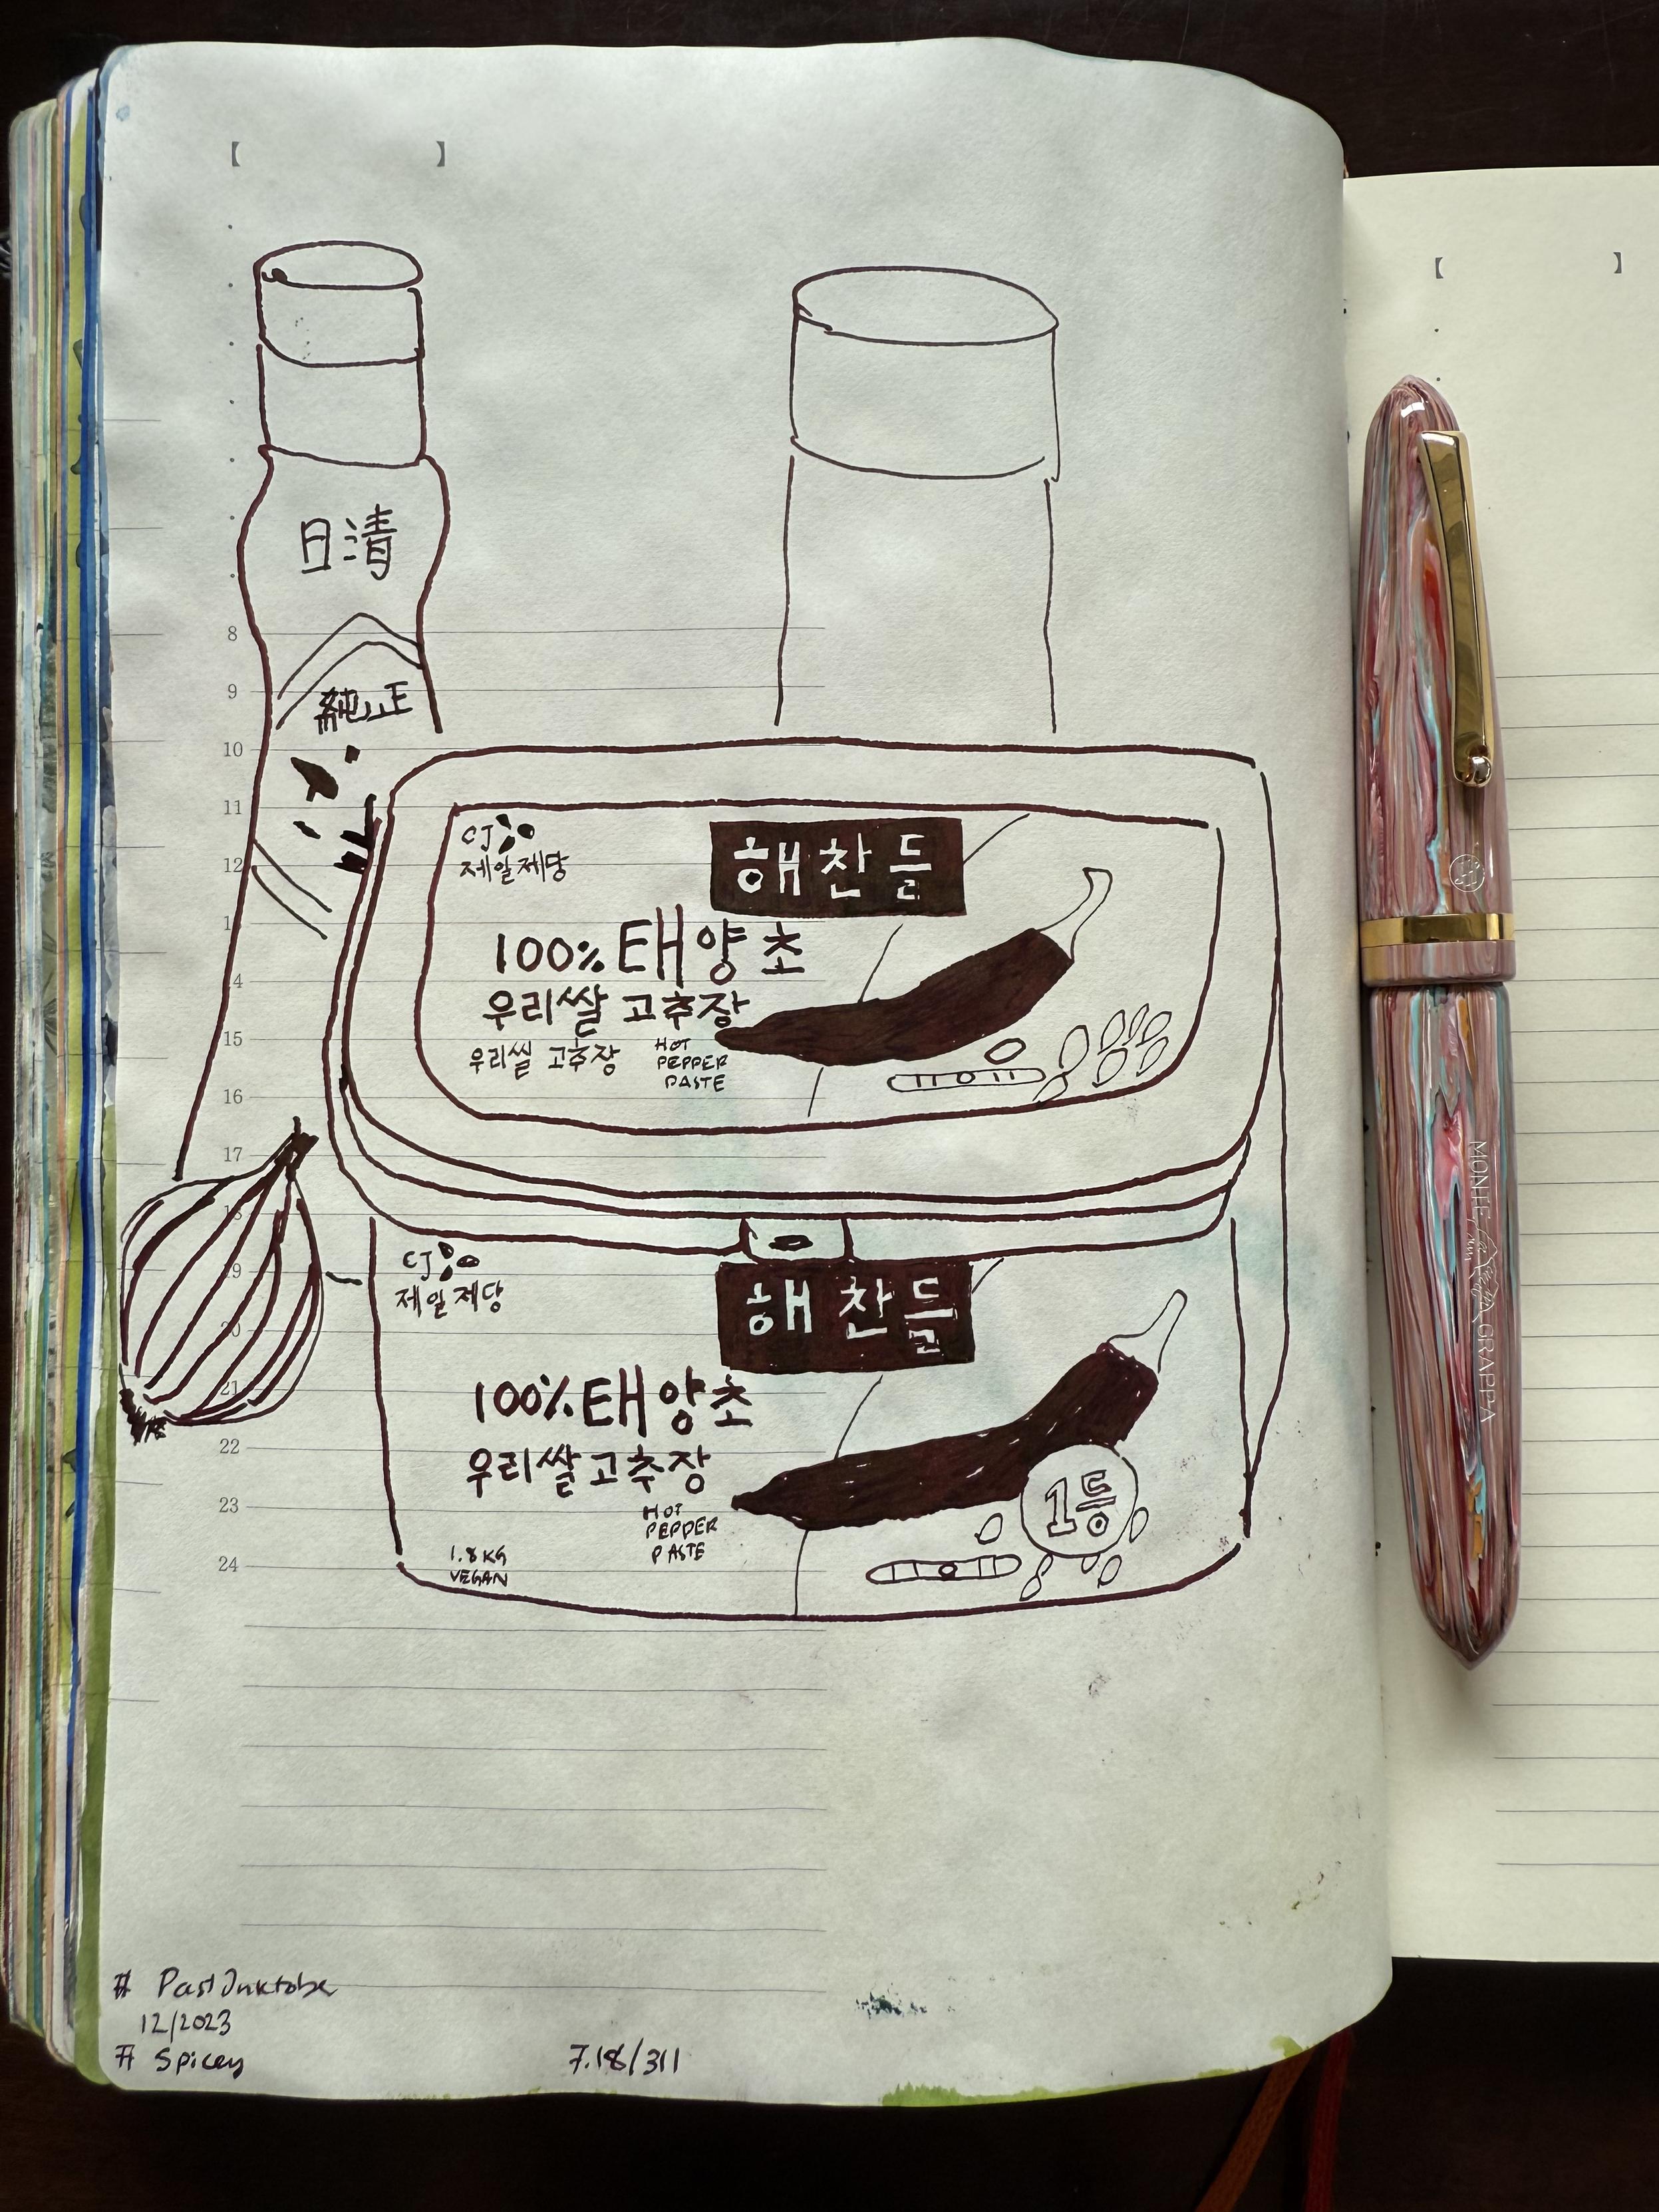 【 】
【 】
日清
純正
8
9
10
11
12
13
14
15
16
17
18
19
20
21
22
23
24
CJ
제일제당
해찬들
100% 태양초
우리쌀 고추장
우리씰 고추장
HOT
PEPPER
PASTE
CJ
제일제당
해찬들
100% 태양초
우리쌀 고추장
HOT
PEPPER
PASTE
1등
1.8 KG
VEGAN
MONTEGRAPPA
# PastInktober
12/2023
# Spicey
7.18/311